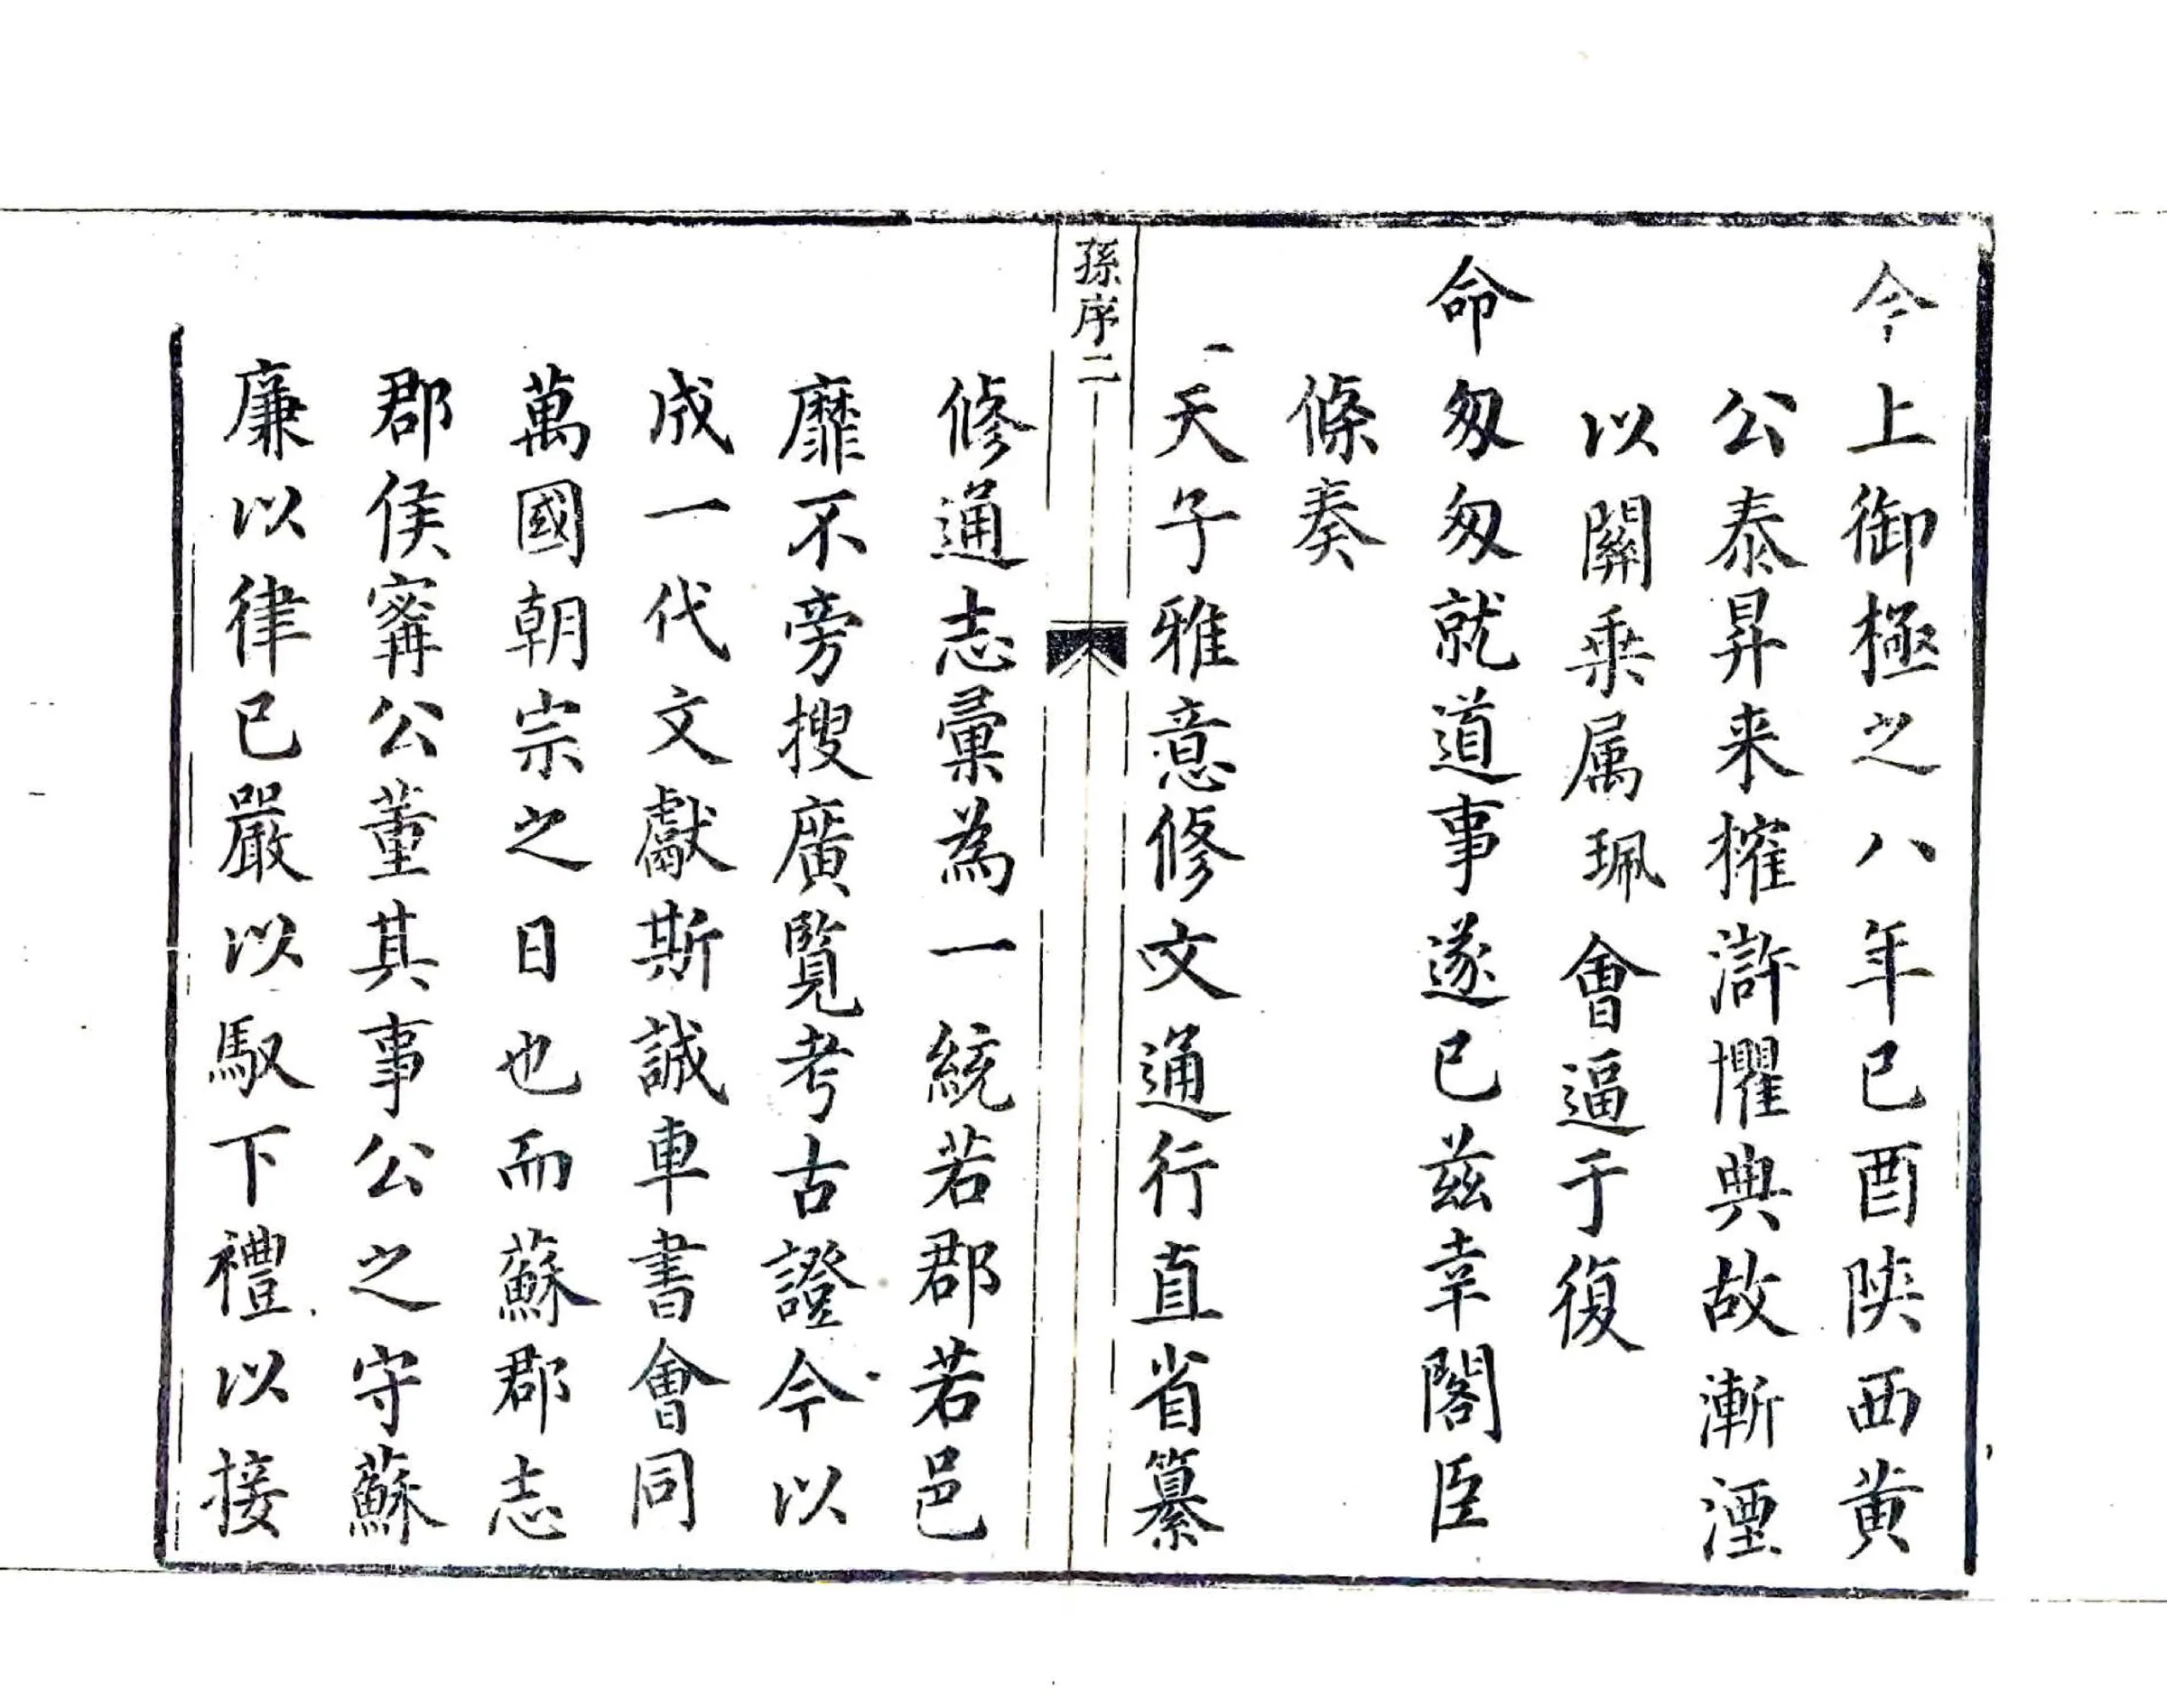 今上御極之八年己酉陝西黄
公泰昇来搉滸懼典故漸湮
以關乘属珮會逼于復
命匆匆就道事遂已兹幸閣臣
條奏
天子雅意修文通行直省纂
孫序二
修通志彙為一統若郡若邑
靡不旁搜廣覧考古證今以
成一代文獻斯誠車書會同
萬國朝宗之日也而蘇郡志
郡侯寗公董其事公之守蘇
廉以律已嚴以馭下禮以接